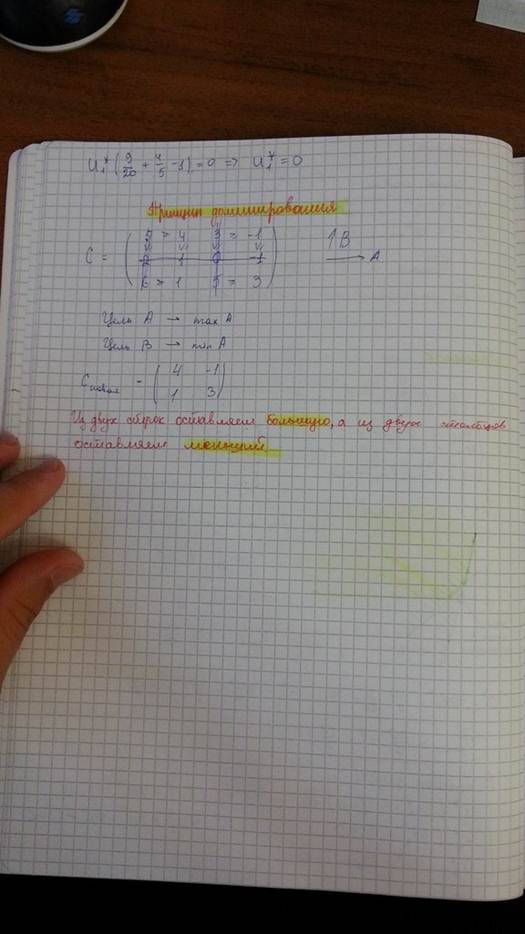 U₁*(9/20 + 4/5 - 1) = 0 => U₁* = 0
Принцип доминирования
5 > 4 3 = -1
C =
2 1 0 -1
6 > 1 5 = 3
↑B → A
Цель A → max A
Цель B → min A
= ( 4 -1
1 3 )
Из двух строк оставляем большую, а из двух столбцов
оставляем меньший